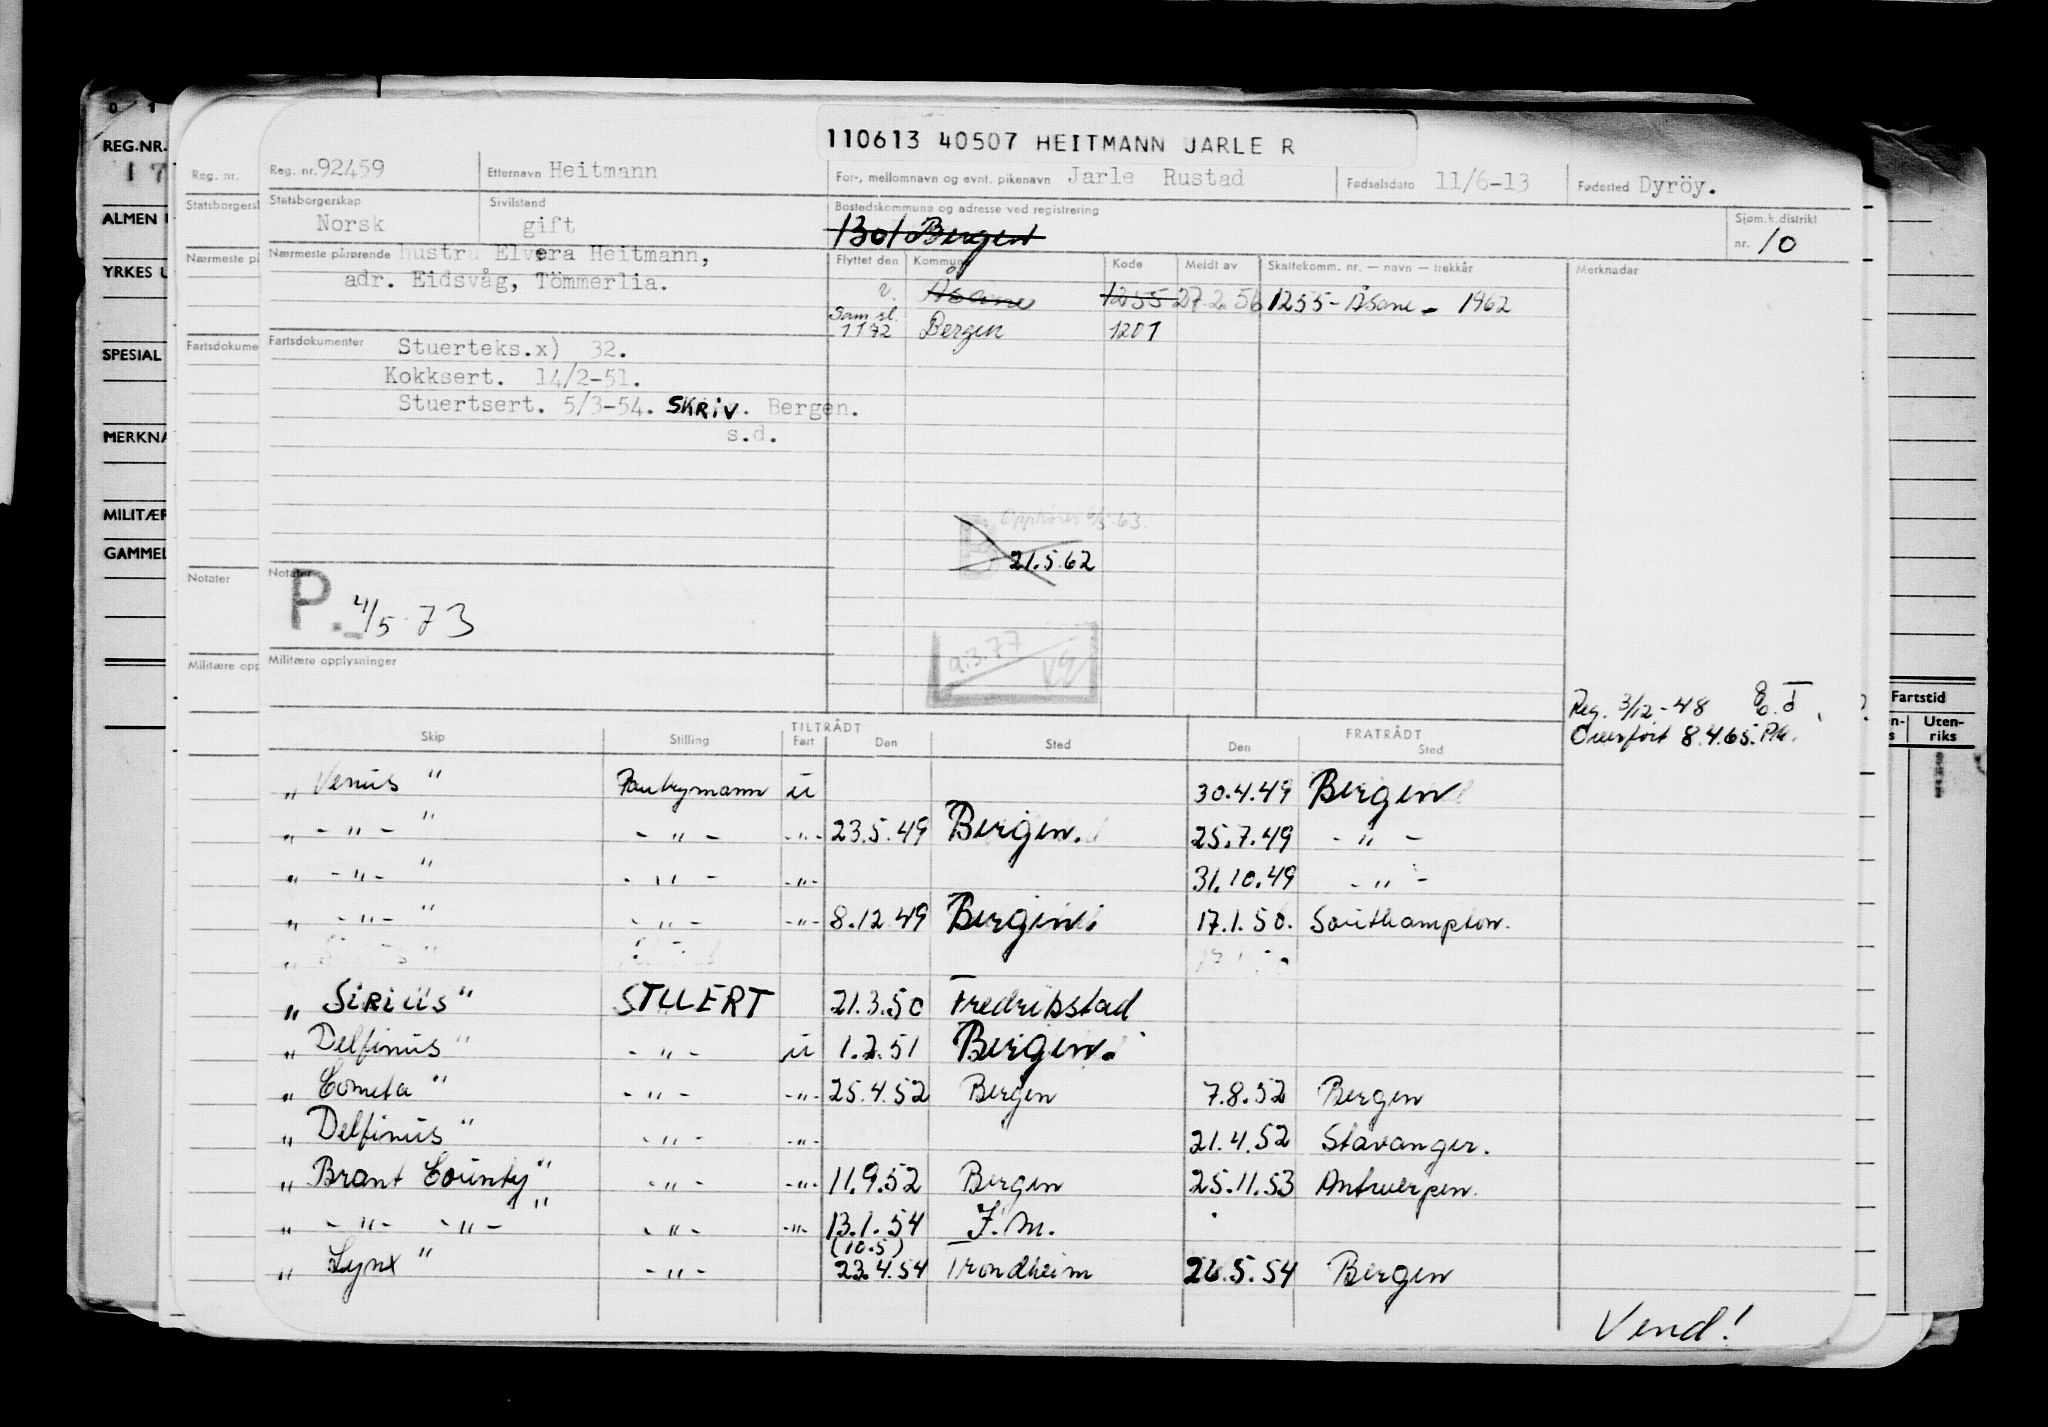 0 1
REG.NR.
17
ALMEN
YRKES
SPESIAL
MERKNA
MILITÆR
GAMMEL
Reg. nr.
Statsborgersk
Nærmeste på
Fartsdokume
Notater
Militære opp
110613 40507 HEITMANN JARLE R
Reg. nr. 92459 Etternavn Heitmann For-, mellomnavn og evnt. pikenavn Jarle Rustad Fødselsdato 11/6-13 Fødested Dyröy.
Statsborgerskap Norsk Sivilstand gift Bostedskommune og adresse ved registrering 1301 Bergen Sjøm.k.distrikt nr. 10
Nærmeste pårørende hustru Elvera Heitmann,
adr. Eidsvåg, Tömmerlia.
Flyttet den Kommune Kode Meldt av Skattekomm. nr. — navn — trekkår Merknader
v. Åsane 1255 27.2.56 1255 - Åsane - 1962
Sam.sl.
1172 Bergen 1201
Fartsdokumenter Stuerteks.x) 32.
Kokksert. 14/2-51.
Stuertsert. 5/3-54. SKRIV. Bergen.
s.d.
Opphører 63.
21.5.62
Notater
P. 4/5 73
9.3.77
Militære opplysninger
Reg. 3/12-48
Overført 8.4.65.
Fartstid
Uten-
riks
TILTRÅDT FRATRÅDT
Skip Stilling Fart Den Sted Den Sted
„ Venus " Pantrymann u 30.4.49 Bergen
„ - " - " - " - - " - 23.5.49 Bergen. 25.7.49 - " -
„ - " - " - " - - " - 31.10.49 - " -
„ - " - " - " - - " - 8.12.49 Bergen. 17.1.50. Southampton.
„ Sirius " STUERT 21.3.50 Fredrikstad
„ Delfinus " - " - u 1.2.51 Bergen.
„ Cometa " - " - - " - 25.4.52 Bergen 7.8.52 Bergen
„ Delfinus " - " - - " - 21.4.52 Stavanger.
„ Brant County " - " - - " - 11.9.52 Bergen 25.11.53 Antwerpen.
„ - " - - " - " - " - - " - 13.1.54 F.M.
(10.5)
„ Lynx " - " - 23.4.54 Trondheim 26.5.54 Bergen
Vend!